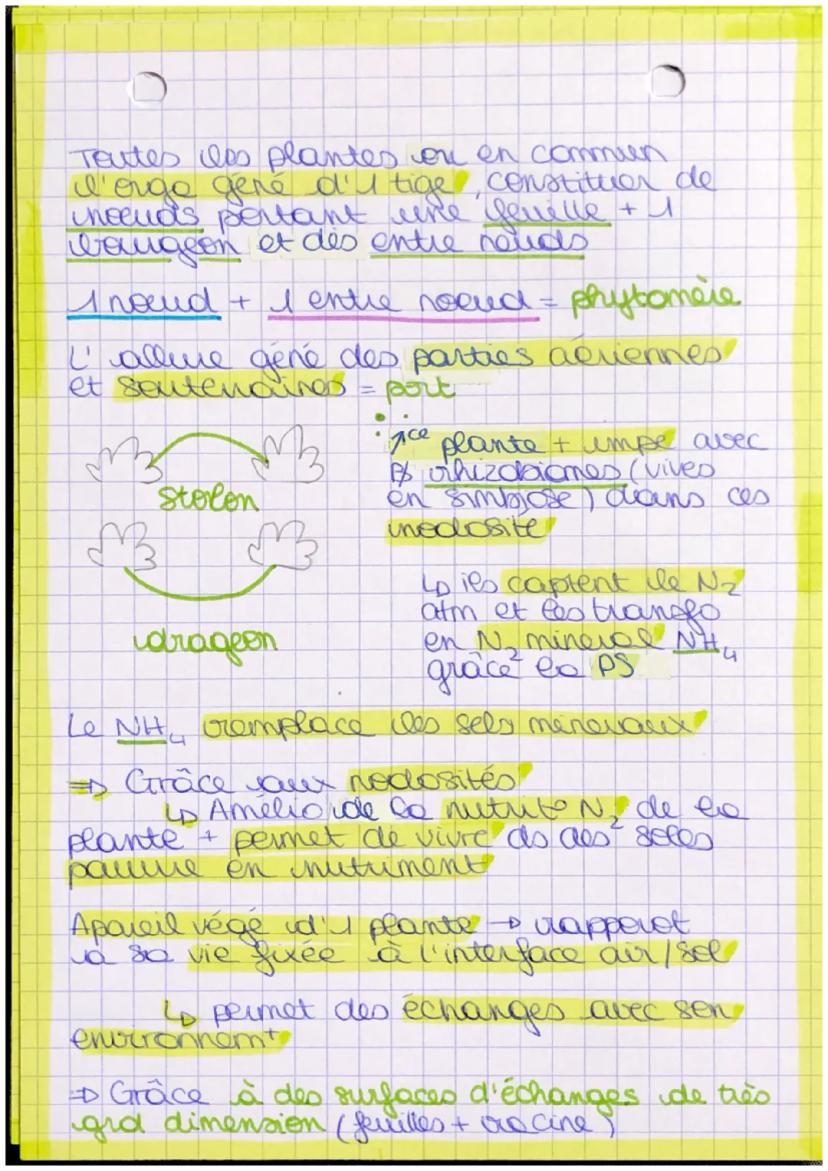 Toutes les plantes on en commun
l'orga géné d'1 tige, constituer de
noeuds portant une feuille + 1
bourgeon et des entre nœuds
1 nœud + 1 entre noeud = phytomère
L'allure géné des parties aériennes
et souterraines = port
stolon
drageon
↗ce plante + impe avec
Ps rhizobiomes (vives
en simbjose) dans ces
nodosité
↳ ils captent le N2
atm et les transfo
en N2 mineral NH4
grâce la PS
Le NH4 remplace les sels mineraux
⇒ Grâce aux nodosités
↳ Amélio de la nututo N2 de la
plante + permet de vivre ds des soles
pauvre en nutriment
Apareil végé d'1 plante → rapporot
à sa vie fixée à l'interface air/sol
↳ permet des échanges avec son
environnemt
⇒ Grâce à des surfaces d'échanges de très
grd dimension (feuilles + racine)